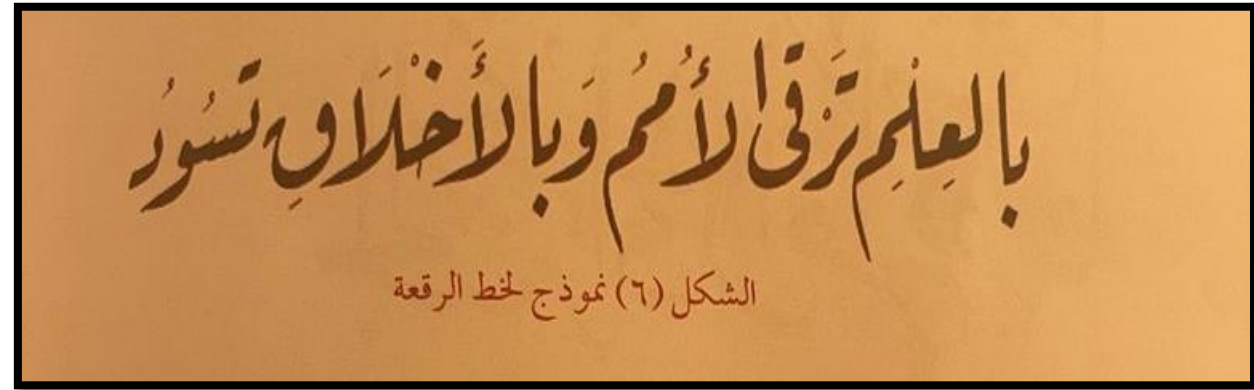 بالعِلْمِ تَرْقى الأُمُم وَبالأَخْلَاقِ تَسُودُ
الشكل (٦) نموذج لخط الرقعة